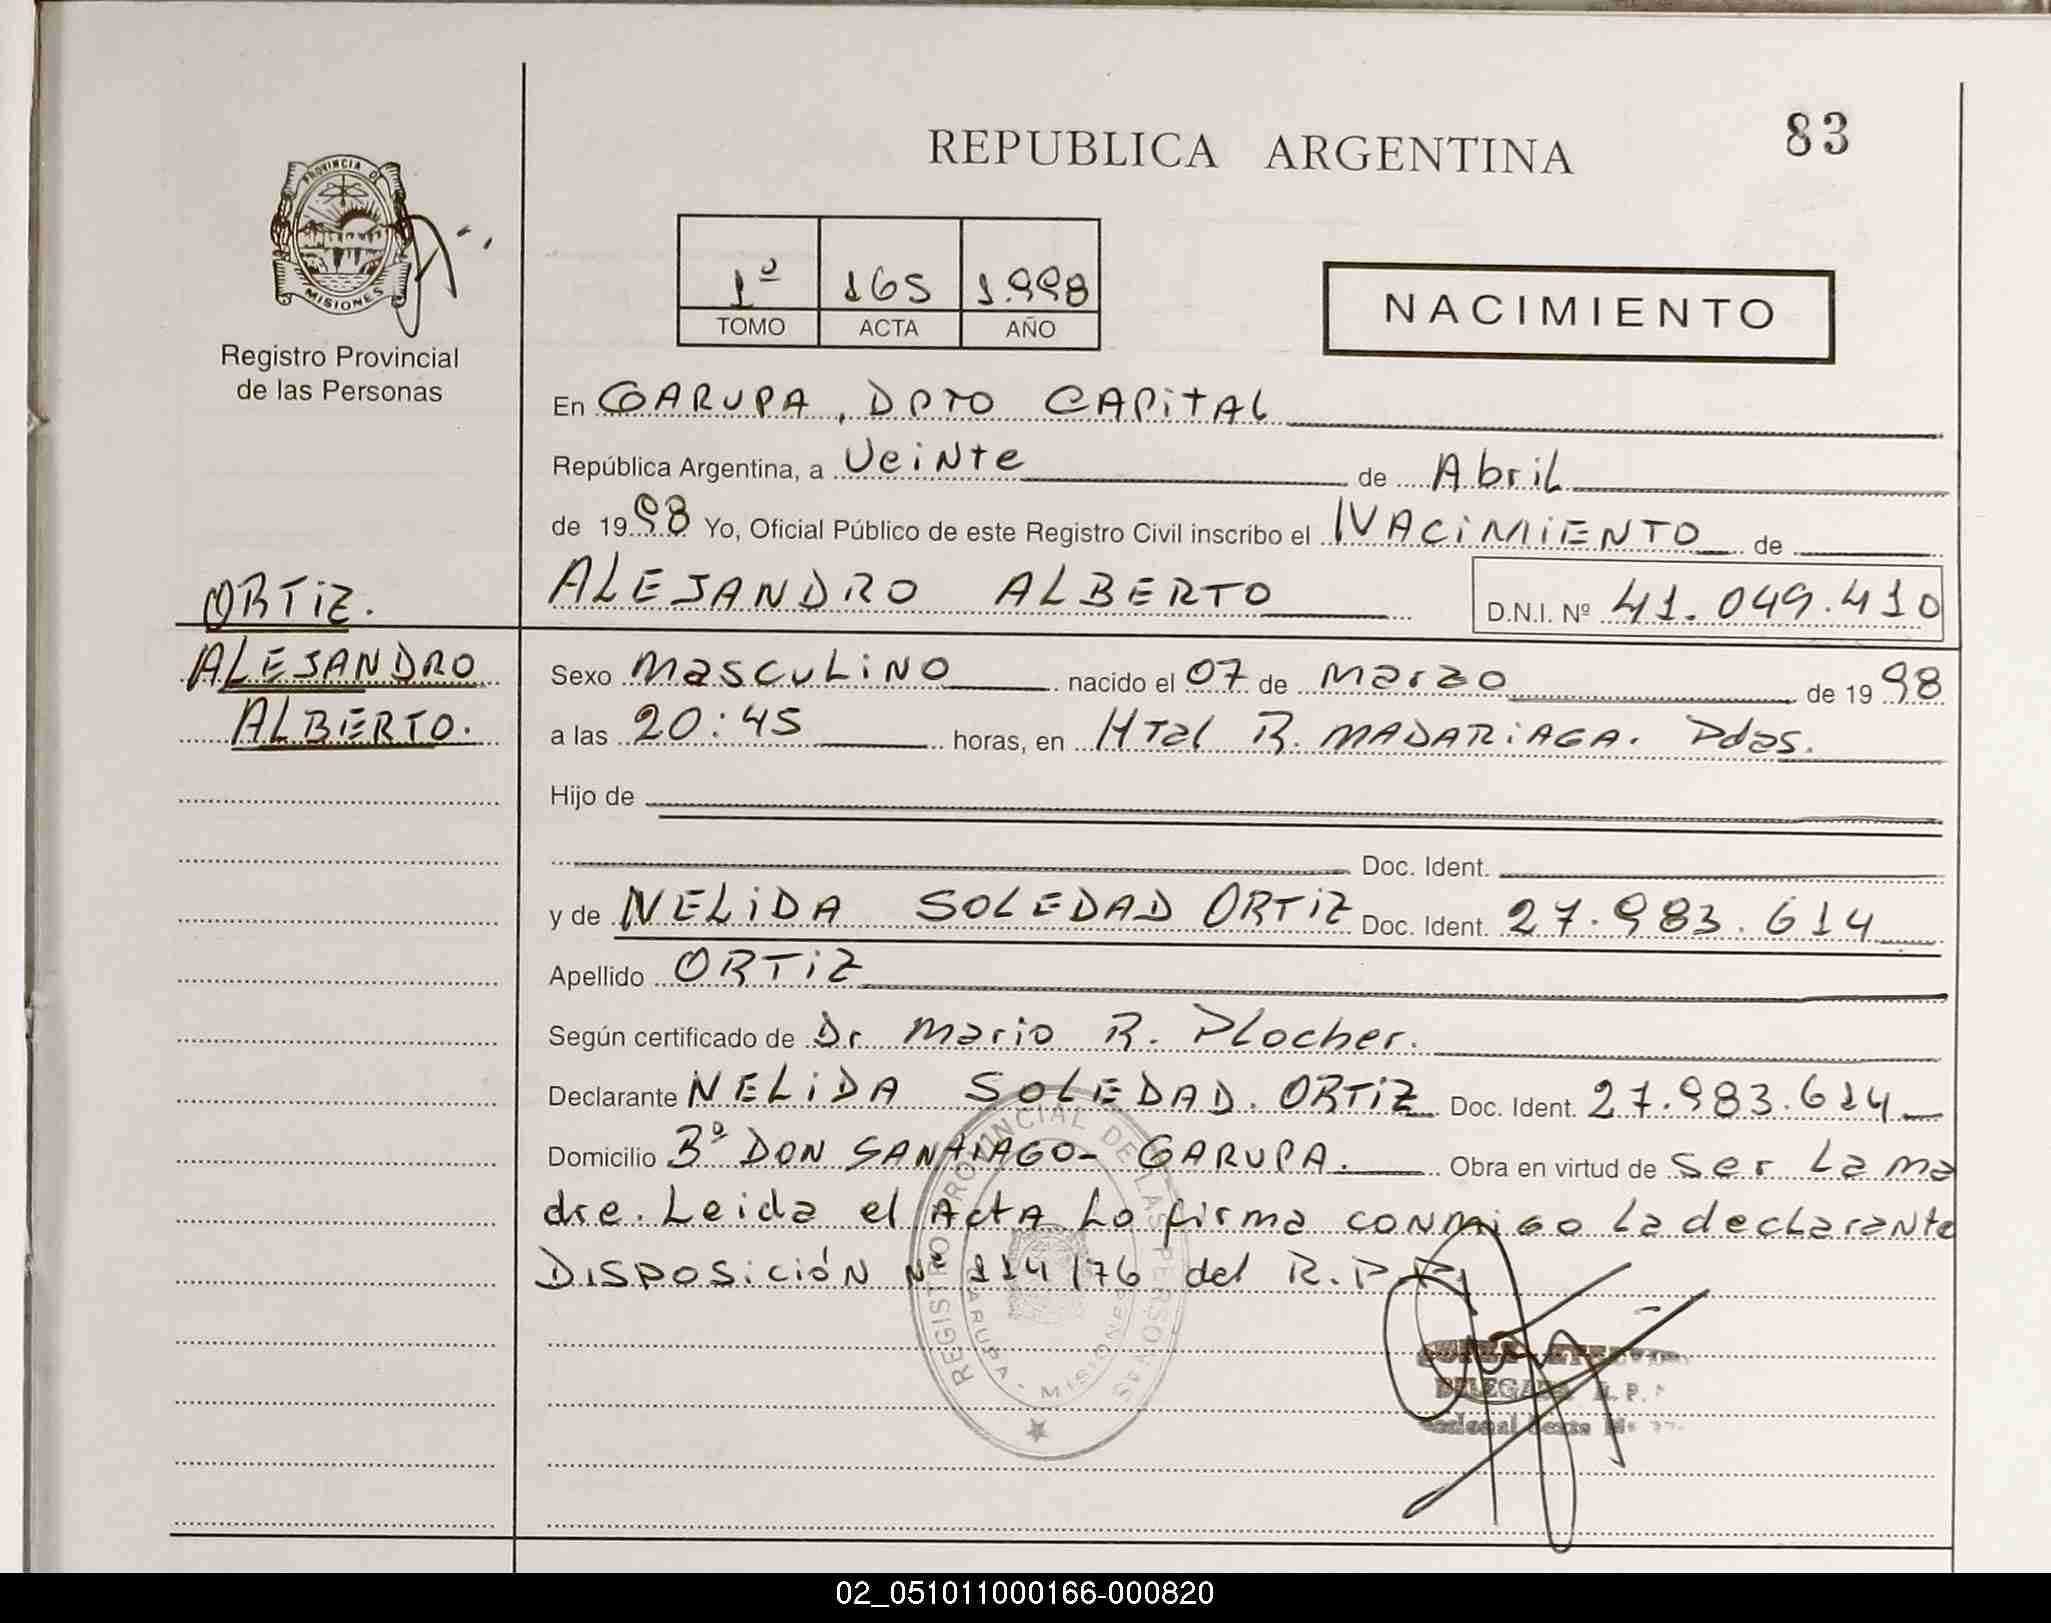 REPUBLICA ARGENTINA
83
PROVINCIA D
MISIONES
Registro Provincial
de las Personas
1º 165 1.998
TOMO ACTA AÑO
NACIMIENTO
En GARUPA, DPTO CAPITAL
República Argentina, a Veinte de Abril
de 1998 Yo, Oficial Público de este Registro Civil inscribo el NACIMIENTO de
ALEJANDRO ALBERTO D.N.I. Nº 41.049.410
ORTIZ.
ALEJANDRO
ALBERTO.
Sexo Masculino nacido el 07 de Marzo de 1998
a las 20:45 horas, en Htal R. MADARIAGA. Pdas.
Hijo de
Doc. Ident.
y de NELIDA SOLEDAD ORTIZ Doc. Ident. 27.983.614
Apellido ORTIZ
Según certificado de Dr Mario R. Plocher.
Declarante NELIDA SOLEDAD. ORTIZ Doc. Ident. 27.983.614
Domicilio Bº DON SANTIAGO- GARUPA. Obra en virtud de ser La ma
dre. Leida el Acta Lo firma conmigo La declarante
Disposición Nº 114/76 del R.P.P.
REGISTRO PROVINCIAL DE LAS PERSONAS
GARUPA - MISIONES
DELEGADA R. P.
02_051011000166-000820